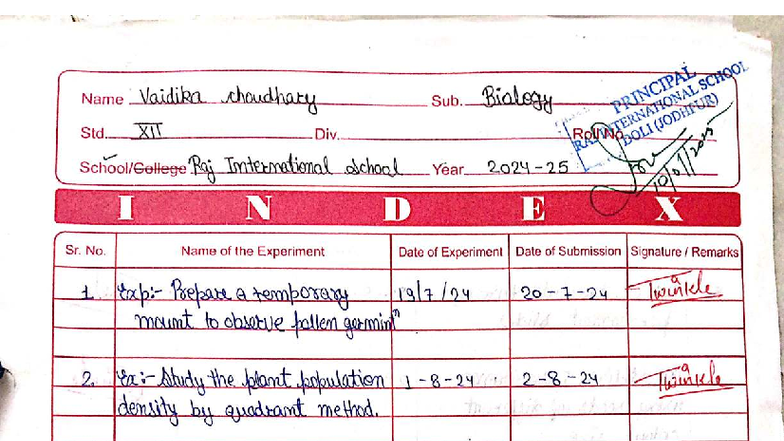 Name Vaidika choudhary Sub. Biology
Std. XII Div. Roll No.
School/College Raj International School Year 2024-25
PRINCIPAL
RAJ INTERNATIONAL SCHOOL
DOLI (JODHPUR)
10/01/2025
INDEX
Sr. No. Name of the Experiment Date of Experiment Date of Submission Signature / Remarks
1. Exp:- Prepare a temporary 19/7/24 20-7-24 Twinkle
mount to observe pollen germinⁿ
2. Ex:- Study the plant population 1-8-24 2-8-24 Twinkle
density by quadrant method.